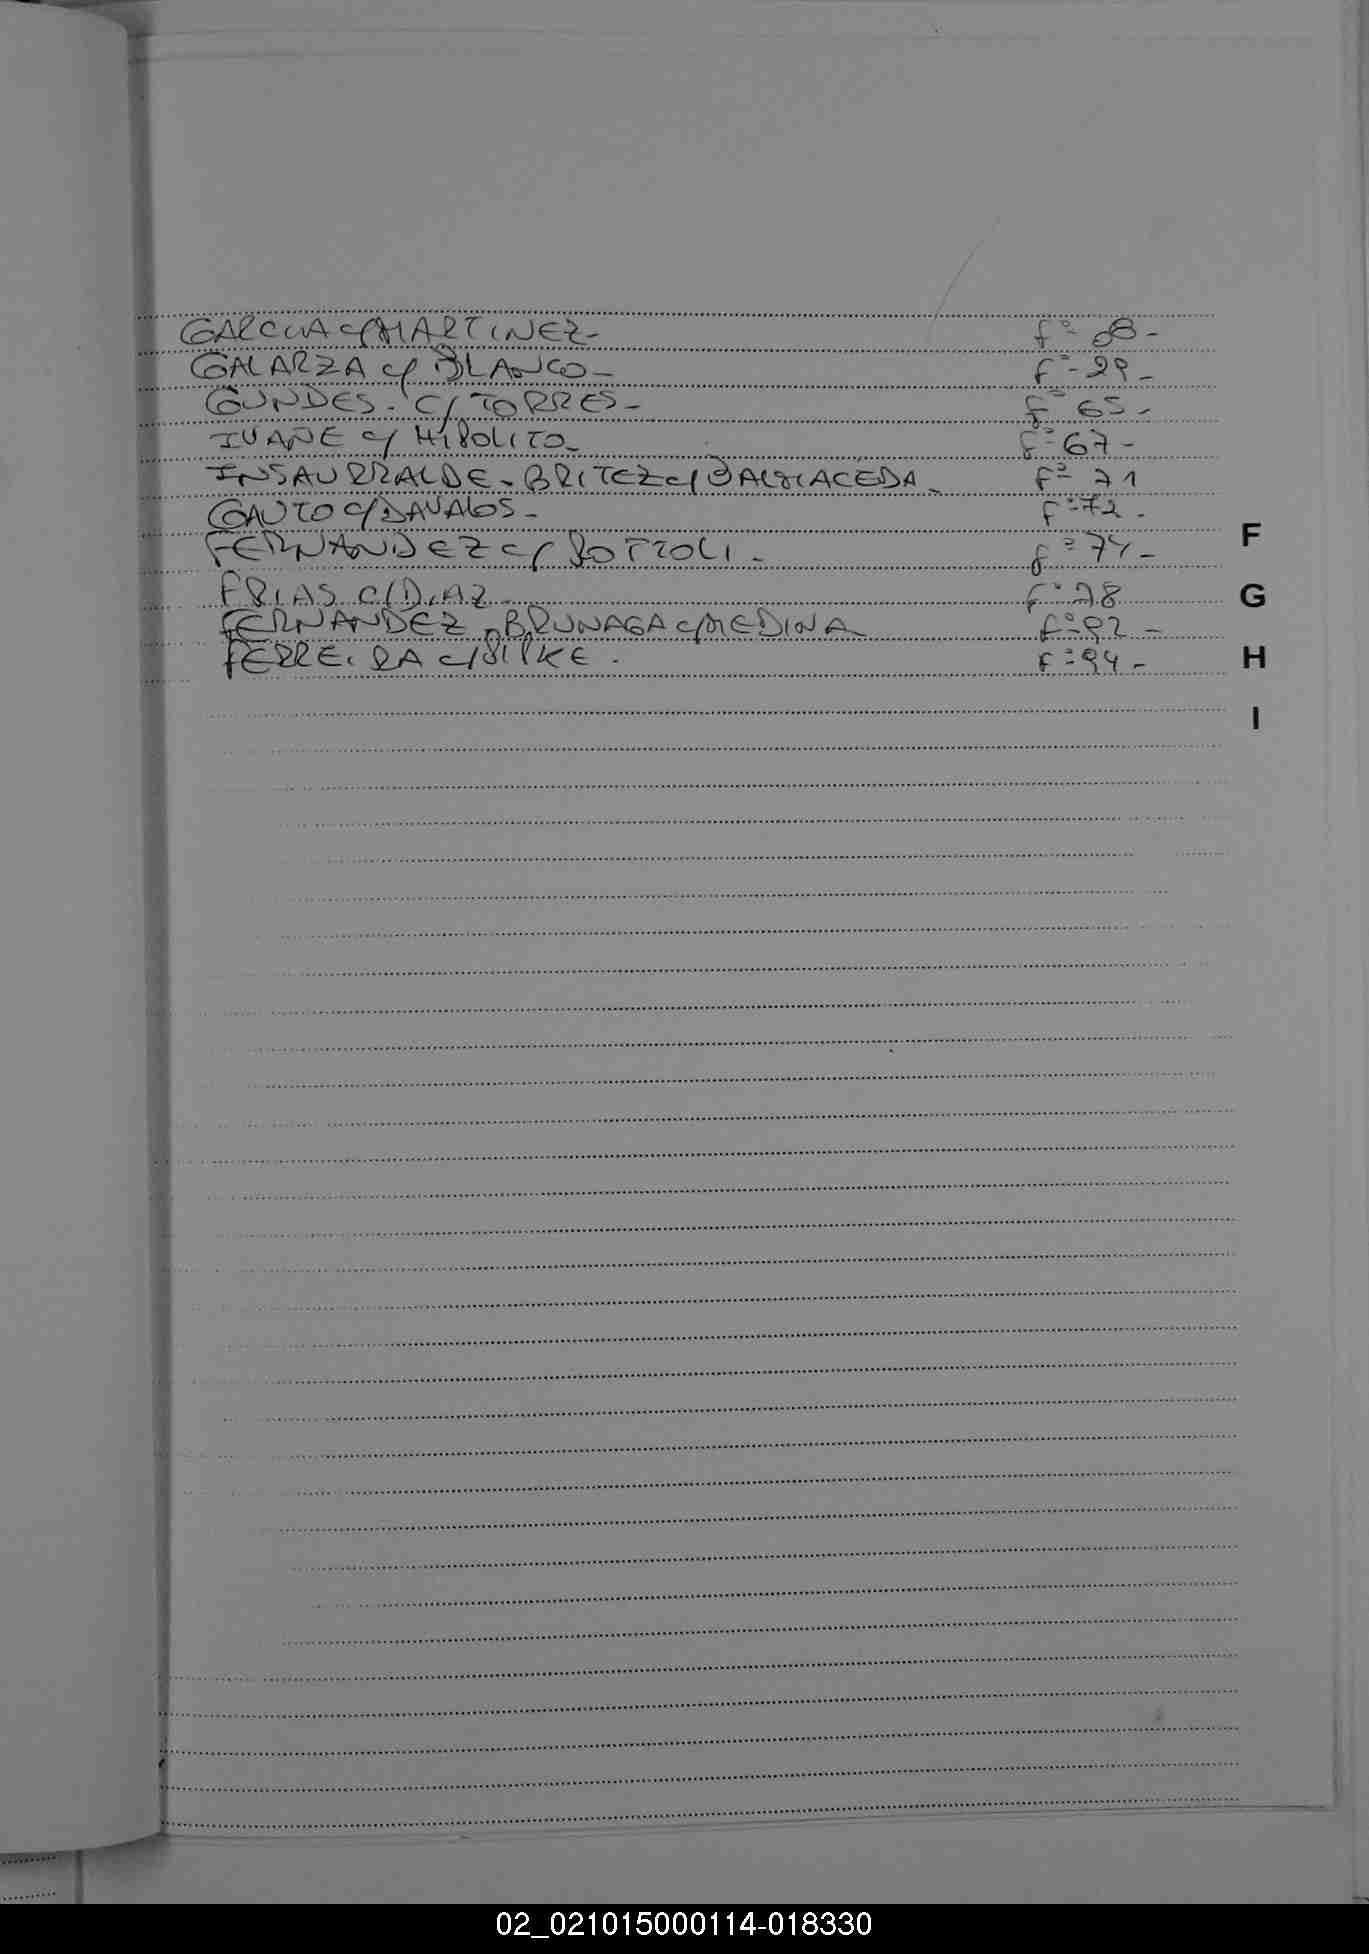 GARCIA c/ MARTINEZ- fº- 08-
GALARZA c/ BLANCO- fº- 29-
GUNDES- C/ TORRES- fº 65-
IVANE c/ HIPOLITO- fº- 67-
INSAURRALDE- BRITEZ c/ BALMACEDA- Fº- 71
GAUTO C/ DAVALOS- fº- 72-
FERNANDEZ c/ BOTTOLI- fº 74-
FRIAS C/ DIAZ- fº- 78
FERNANDEZ, BRUNAGA c/ MEDINA fº 92-
FERREIRA c/ SILKE. Fº- 94-
F
G
H
I
02_021015000114-018330